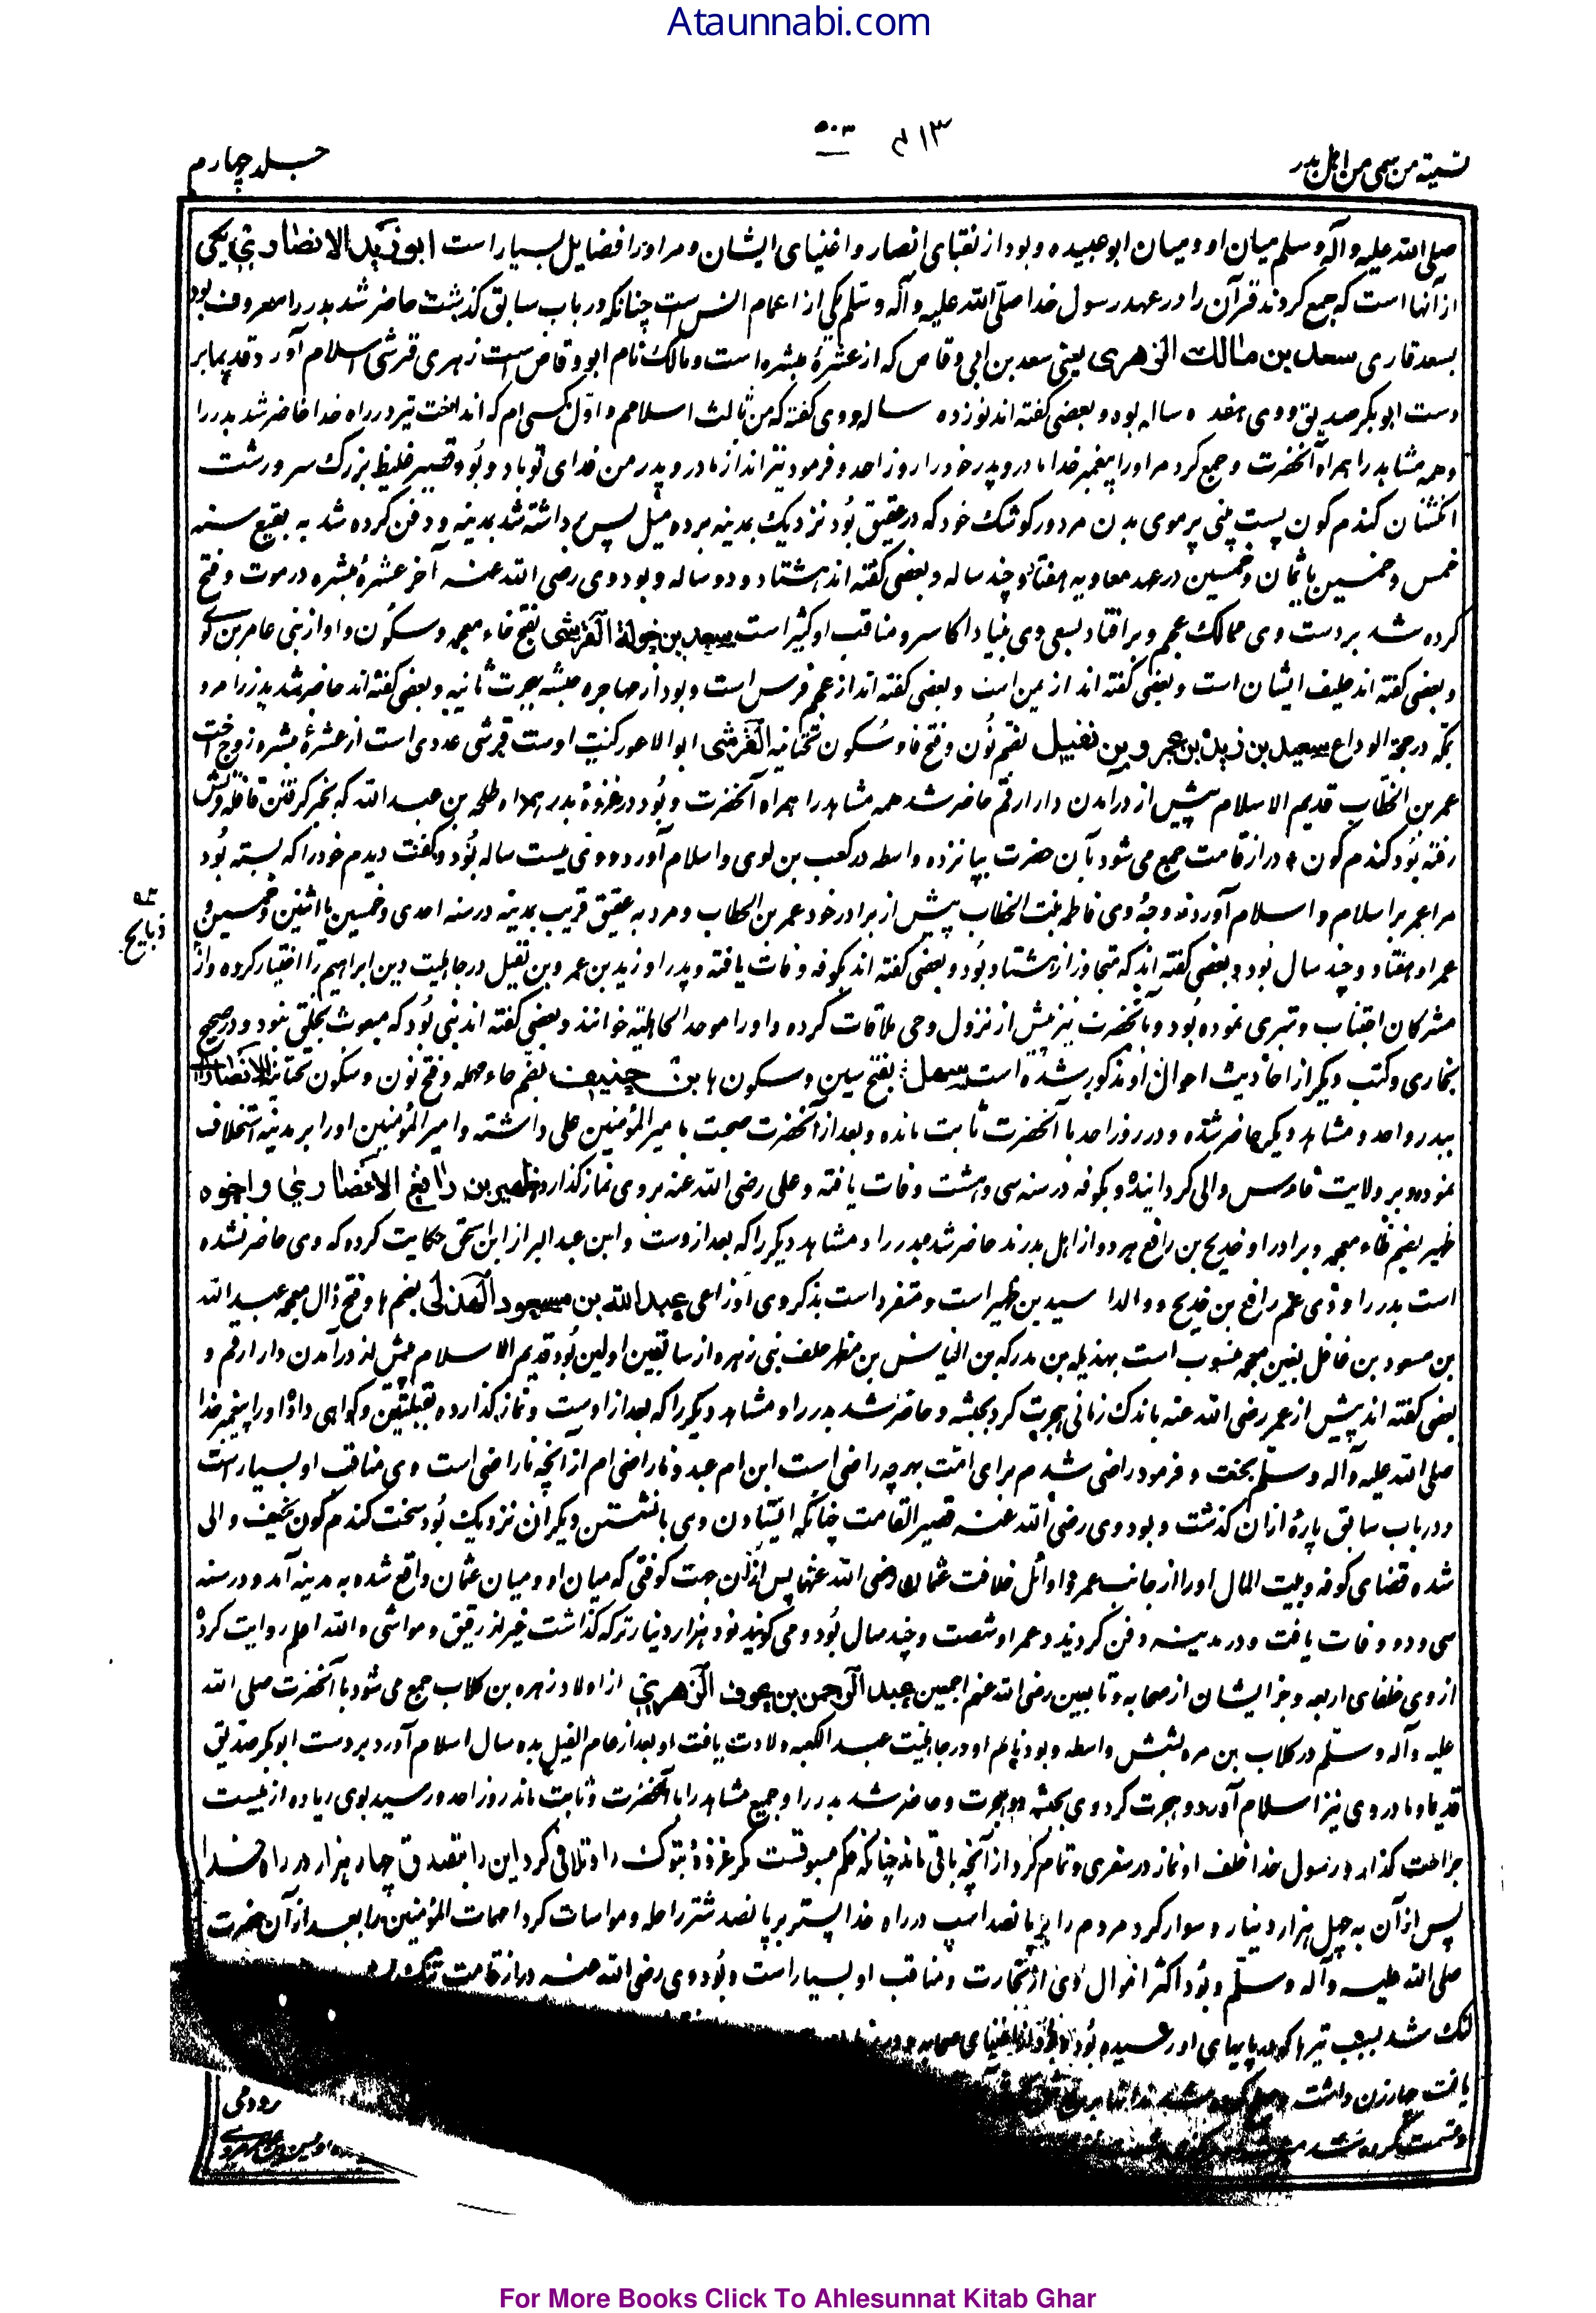 Ataunnabi.com
۵۰۳
تسمیة من سمی من اهل بدر
جلد چهارم
صلی الله علیه وآله وسلم میان او ومیان ابو عبیده وبود از نقبای انصار واغنیای ایشان ومر او را فضایل بسیار است ابو زید الانصاری یکی
از آنها است که جمع کردند قرآن را در عهد رسول خدا صلی الله علیه وآله وسلم یکی از اعمام انس است چنانکه در باب سابق گذشت حاضر شد بدر را معروف بود
بسعد قاری سعد بن مالک الزهری یعنی سعد بن ابی وقاص که از عشرهٔ مبشره است ومالک نام ابو وقاص است زهری قرشی اسلام آورد قدیما بر
دست ابوبکر صدیق ووی هفده ساله بوده وبعضی گفته اند نوزده ساله ووی گفته که من ثالث اسلامم واول کسی ام که انداخت تیر در راه خدا حاضر شد بدر را
وهمه مشاهد را همراه آنحضرت وجمع کرد مر او را پیغمبر خدا مادر وپدر خود را روز احد وفرمود تیر انداز مادر وپدر من فدای تو باد وبود قصیر غلیظ بزرگ سر درشت
انگشتان گندم گون پست بینی پر موی بدن مرد در کوشک خود که در عقیق بود نزدیک بمدینه بر ده میل پس برداشته شد بمدینه ودفن کرده شد به بقیع سنه
خمس وخمسین یا ثمان وخمسین در عهد معاویه هفتاد وچند ساله وبعضی گفته اند هشتاد ودو ساله وبود وی رضی الله عنه آخر عشرهٔ مبشره در موت وفتح
کرده شد بر دست وی ممالک عجم وبر افتاد بسعی وی بنیاد اکاسره ومناقب او کثیر است سعد بن خولة القرشی بفتح خاء معجمه وسکون واو از بنی عامر بن لوی
وبعضی گفته اند حلیف ایشان است وبعضی گفته اند از یمن است وبعضی گفته اند از عجم فرس است وبود از مهاجره حبشه بهجرت ثانیه وبعضی گفته اند حاضر شد بدر را مرد
بمکه در حجة الوداع سعید بن زید بن عمرو بن نفیل بضم نون وفتح فا وسکون تحتانیه القرشی ابو الاعور کنیت اوست قرشی عدوی است از عشرهٔ مبشره زوج اخت
عمر بن الخطاب قدیم الاسلام پیش از درآمدن دار ارقم حاضر شد همه مشاهد را همراه آنحضرت وبود در غزوهٔ بدر همراه طلحه بن عبدالله که بخبر گرفتن قافله قریش
رفته بود گندم گون دراز قامت جمع می شود بآن حضرت بیانزده واسطه در کعب بن لوی واسلام آورد ووی بیست ساله بود وگفت دیدم خود را که بسته بود
مرا عمر بر اسلام واسلام آورد زوجهٔ وی فاطمه بنت الخطاب پیش از برادر خود عمر بن الخطاب ومرد به عقیق قریب بمدینه در سنه احدی وخمسین یا اثنین وخمسین و
عمر او هفتاد وچند سال بود وبعضی گفته اند که متجاوز از هشتاد بود وبعضی گفته اند بکوفه وفات یافته وپدر او زید بن عمرو بن نفیل در جاهلیت دین ابراهیم را اختیار کرده واز
مشرکان اجتناب وتبری نموده بود وبآنحضرت نیز پیش از نزول وحی ملاقات کرده واو را موحد الجاهلیة خوانند وبعضی گفته اند نبی بود که مبعوث بخلق نبود ودر صحیح
بخاری وکتب دیگر از احادیث احوال او مذکور شده است سهل بفتح سین وسکون ها بن حنیف بضم حاء مهمله وفتح نون وسکون تحتانیه الانصاری
ببدر واحد ومشاهد دیگر حاضر شده ودر روز احد با آنحضرت ثابت مانده وبعد از آنحضرت صحبت با امیرالمؤمنین علی داشته وامیرالمؤمنین او را بر مدینه استخلاف
نموده وبر ولایت فارس والی گردانیده وبکوفه در سنه سی وهشت وفات یافته وعلی رضی الله عنه بر وی نماز گذارد ظهیر بن رافع الانصاری واخوه
ظهیر بضم ظاء معجمه وبرادر او خدیج بن رافع هر دو از اهل بدرند حاضر شد بدر را ومشاهد دیگر را که بعد از وست وابن عبدالبر از ابن اسحق حکایت کرده که وی حاضر نشده
است بدر را ووی عم رافع بن خدیج ووالد اسید بن ظهیر است ومتفرد است بذکر وی اوزاعی عبدالله بن مسعود الهذلی بضم ها وفتح ذال معجمه عبدالله
بن مسعود بن غافل بغین معجمه منسوب است بهذیل بن مدرکه بن الیاس بن مضر حلف بنی زهره از سابقین اولین بود قدیم الاسلام پیش از درآمدن دار ارقم و
بعضی گفته اند پیش از عمر رضی الله عنه باندک زمانی هجرت کرد بحبشه وحاضر شد بدر را ومشاهد دیگر را که بعد از اوست ونماز گذارده بقبلتین وگواهی داد او را پیغمبر خدا
صلی الله علیه وآله وسلم بجنت وفرمود راضی شدم برای امت بهر چه راضی است ابن ام عبد وناراضی ام از آنچه ناراضی است وی مناقب او بسیار است
ودر باب سابق پارهٔ ازان گذشت وبود وی رضی الله عنه قصیر القامت چنانکه ایستادن وی بانشستن دیگران نزدیک بود سخت گندم گون نحیف والی
شده قضای کوفه وبیت المال او را از جانب عمر واوائل خلافت عثمان رضی الله عنهما پس ازان بجهت کوفتی که میان او ومیان عثمان واقع شده به مدینه آمد ودر سنه
سی ودو وفات یافت ودر مدینه دفن کردند وعمر او شصت وچند سال بود ومی گویند نود هزار دینار ترکه گذاشت غیر از رقیق ومواشی والله اعلم روایت کرده
از وی خلفای اربعه وجز ایشان از صحابه وتابعین رضی الله عنهم اجمعین عبد الرحمن بن عوف الزهری از اولاد زهره بن کلاب جمع می شود با آنحضرت صلی الله
علیه وآله وسلم در کلاب بن مره بشش واسطه وبود نام او در جاهلیت عبد الکعبه ولادت یافت او بعد از عام الفیل بده سال اسلام آورد بر دست ابوبکر صدیق
قدیما ومادر وی نیز اسلام آورد وهجرت کرد وی بحبشه دو هجرت وحاضر شد بدر را وجمیع مشاهد را با آنحضرت وثابت ماند روز احد ورسید بوی زیاده از بیست
جراحت گذارد رسول خدا خلف او نماز در سفری وتمام کرد از آنچه باقی ماند چنانکه حکم مسبوقست مگر غزوهٔ تبوک را وتلافی کرد این را بتصدق چهار هزار در راه خدا
پس از آن به چهل هزار دینار وسوار کرد مردم را بر پانصد اسپ در راه خدا پستر بر پانصد شتر راحله ومواسات کرد امهات المؤمنین را بعد از آن حضرت
صلی الله علیه وآله وسلم وبود اکثر اموال وی از تجارت ومناقب او بسیار است وبود وی رضی الله عنه دراز قامت تنک
لنگ شد بسبب تیرها که در پایهای او رسیده بود اغنیای صحابه
یافت چار زن داشت
وقسمت کرده شد
ذبایح
For More Books Click To Ahlesunnat Kitab Ghar